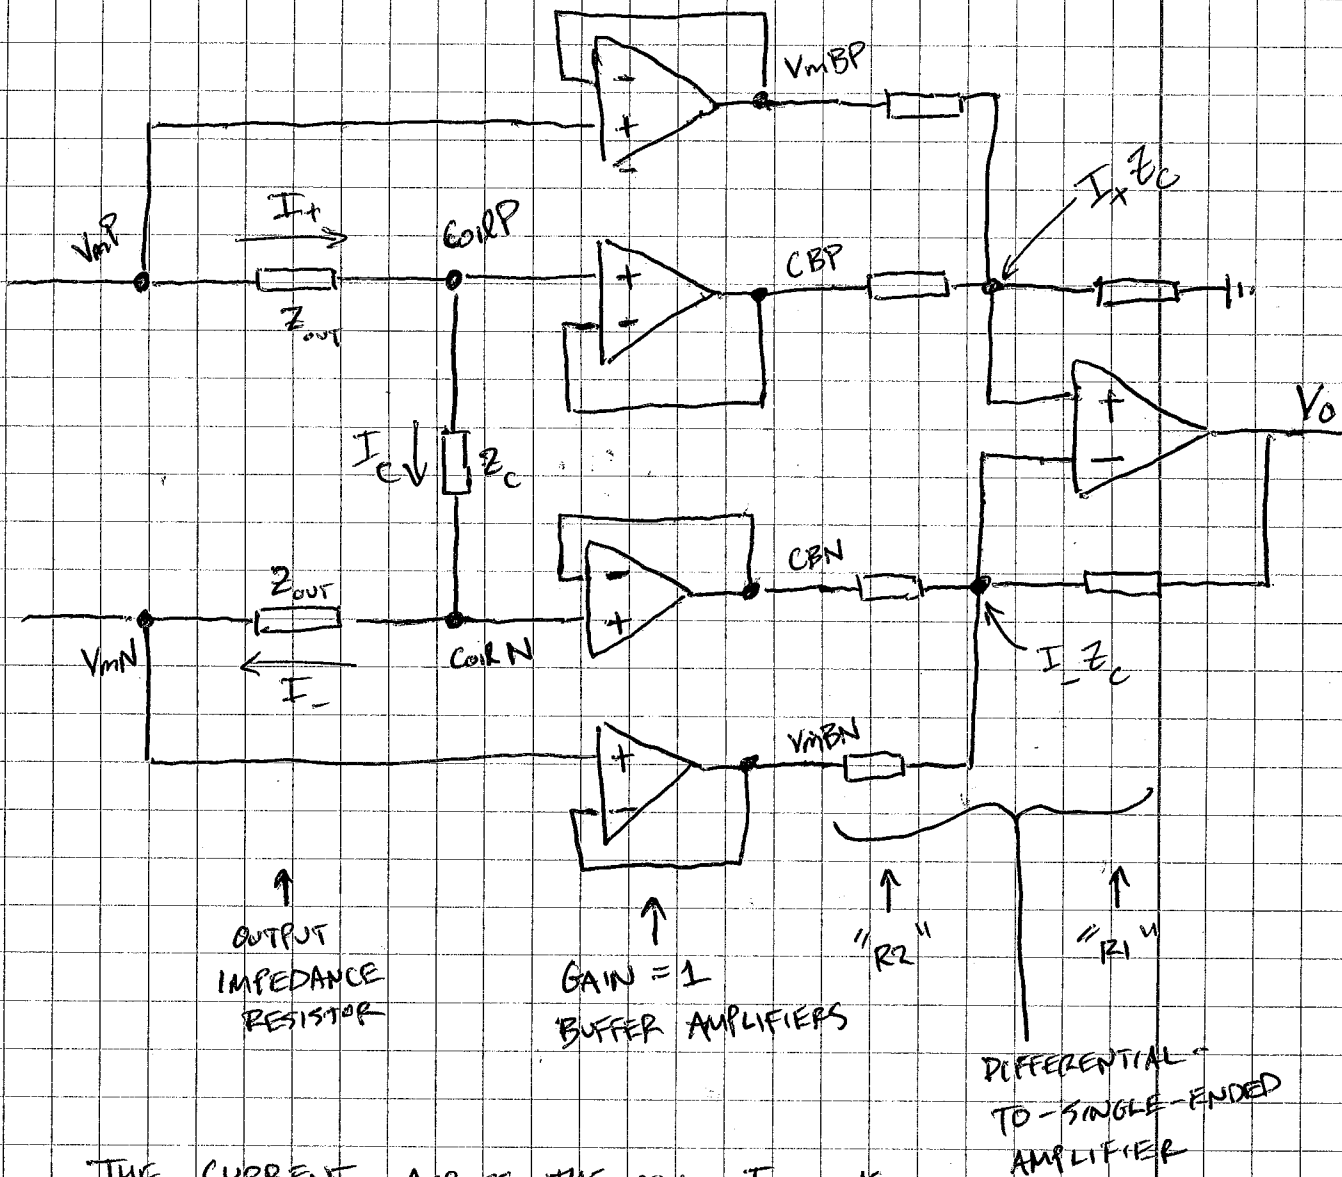 VmBP
I+
VmP
CoilP
Zout
CBP
IxZc
Vo
Ic
Zc
Zout
CBN
VmN
I-
CoilN
I-Zc
VmBN
OUTPUT
IMPEDANCE
RESISTOR
GAIN = 1
BUFFER AMPLIFIERS
"R2"
"R1"
DIFFERENTIAL-
TO-SINGLE-ENDED
AMPLIFIER
THE CURRENT